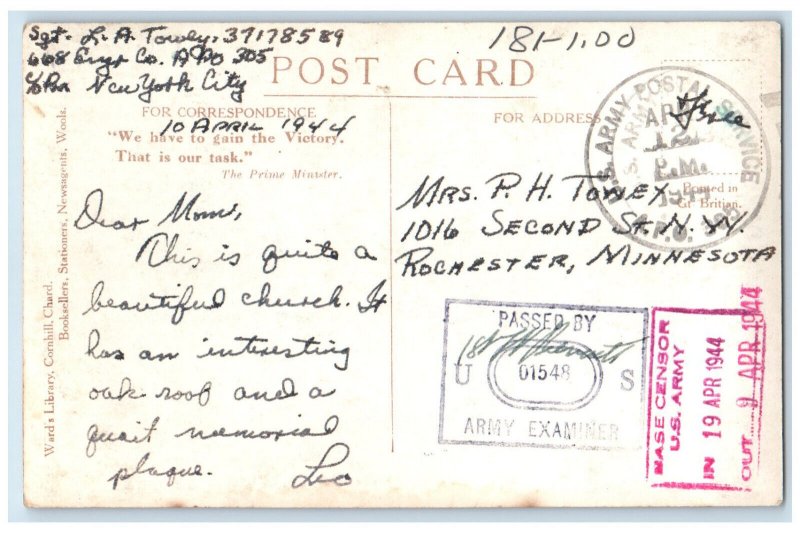 Sgt. L. A. Towey, 37178589
668 Engr Co. APO 305
c/o Pm New York City
181-1.00
POST CARD
FOR CORRESPONDENCE
10 APRIL 1944
"We have to gain the Victory.
That is our task."
The Prime Minister.
Dear Mom,
This is quite a
beautiful church. It
has an interesting
oak roof and a
quait memorial
plaque. Leo
Ward's Library, Cornhill, Chard.
Booksellers, Stationers, Newsagents, Wools.
FOR ADDRESS
Free
U.S. ARMY POSTAL SERVICE
12
P.M.
A.P.O.
Printed in
Gt Britian.
MRS. P. H. TOWEY
1016 SECOND ST. N.W.
ROCHESTER, MINNESOTA
PASSED BY
U 01548 S
ARMY EXAMINER
BASE CENSOR
U.S. ARMY
IN 19 APR 1944
OUT 9 APR 1944